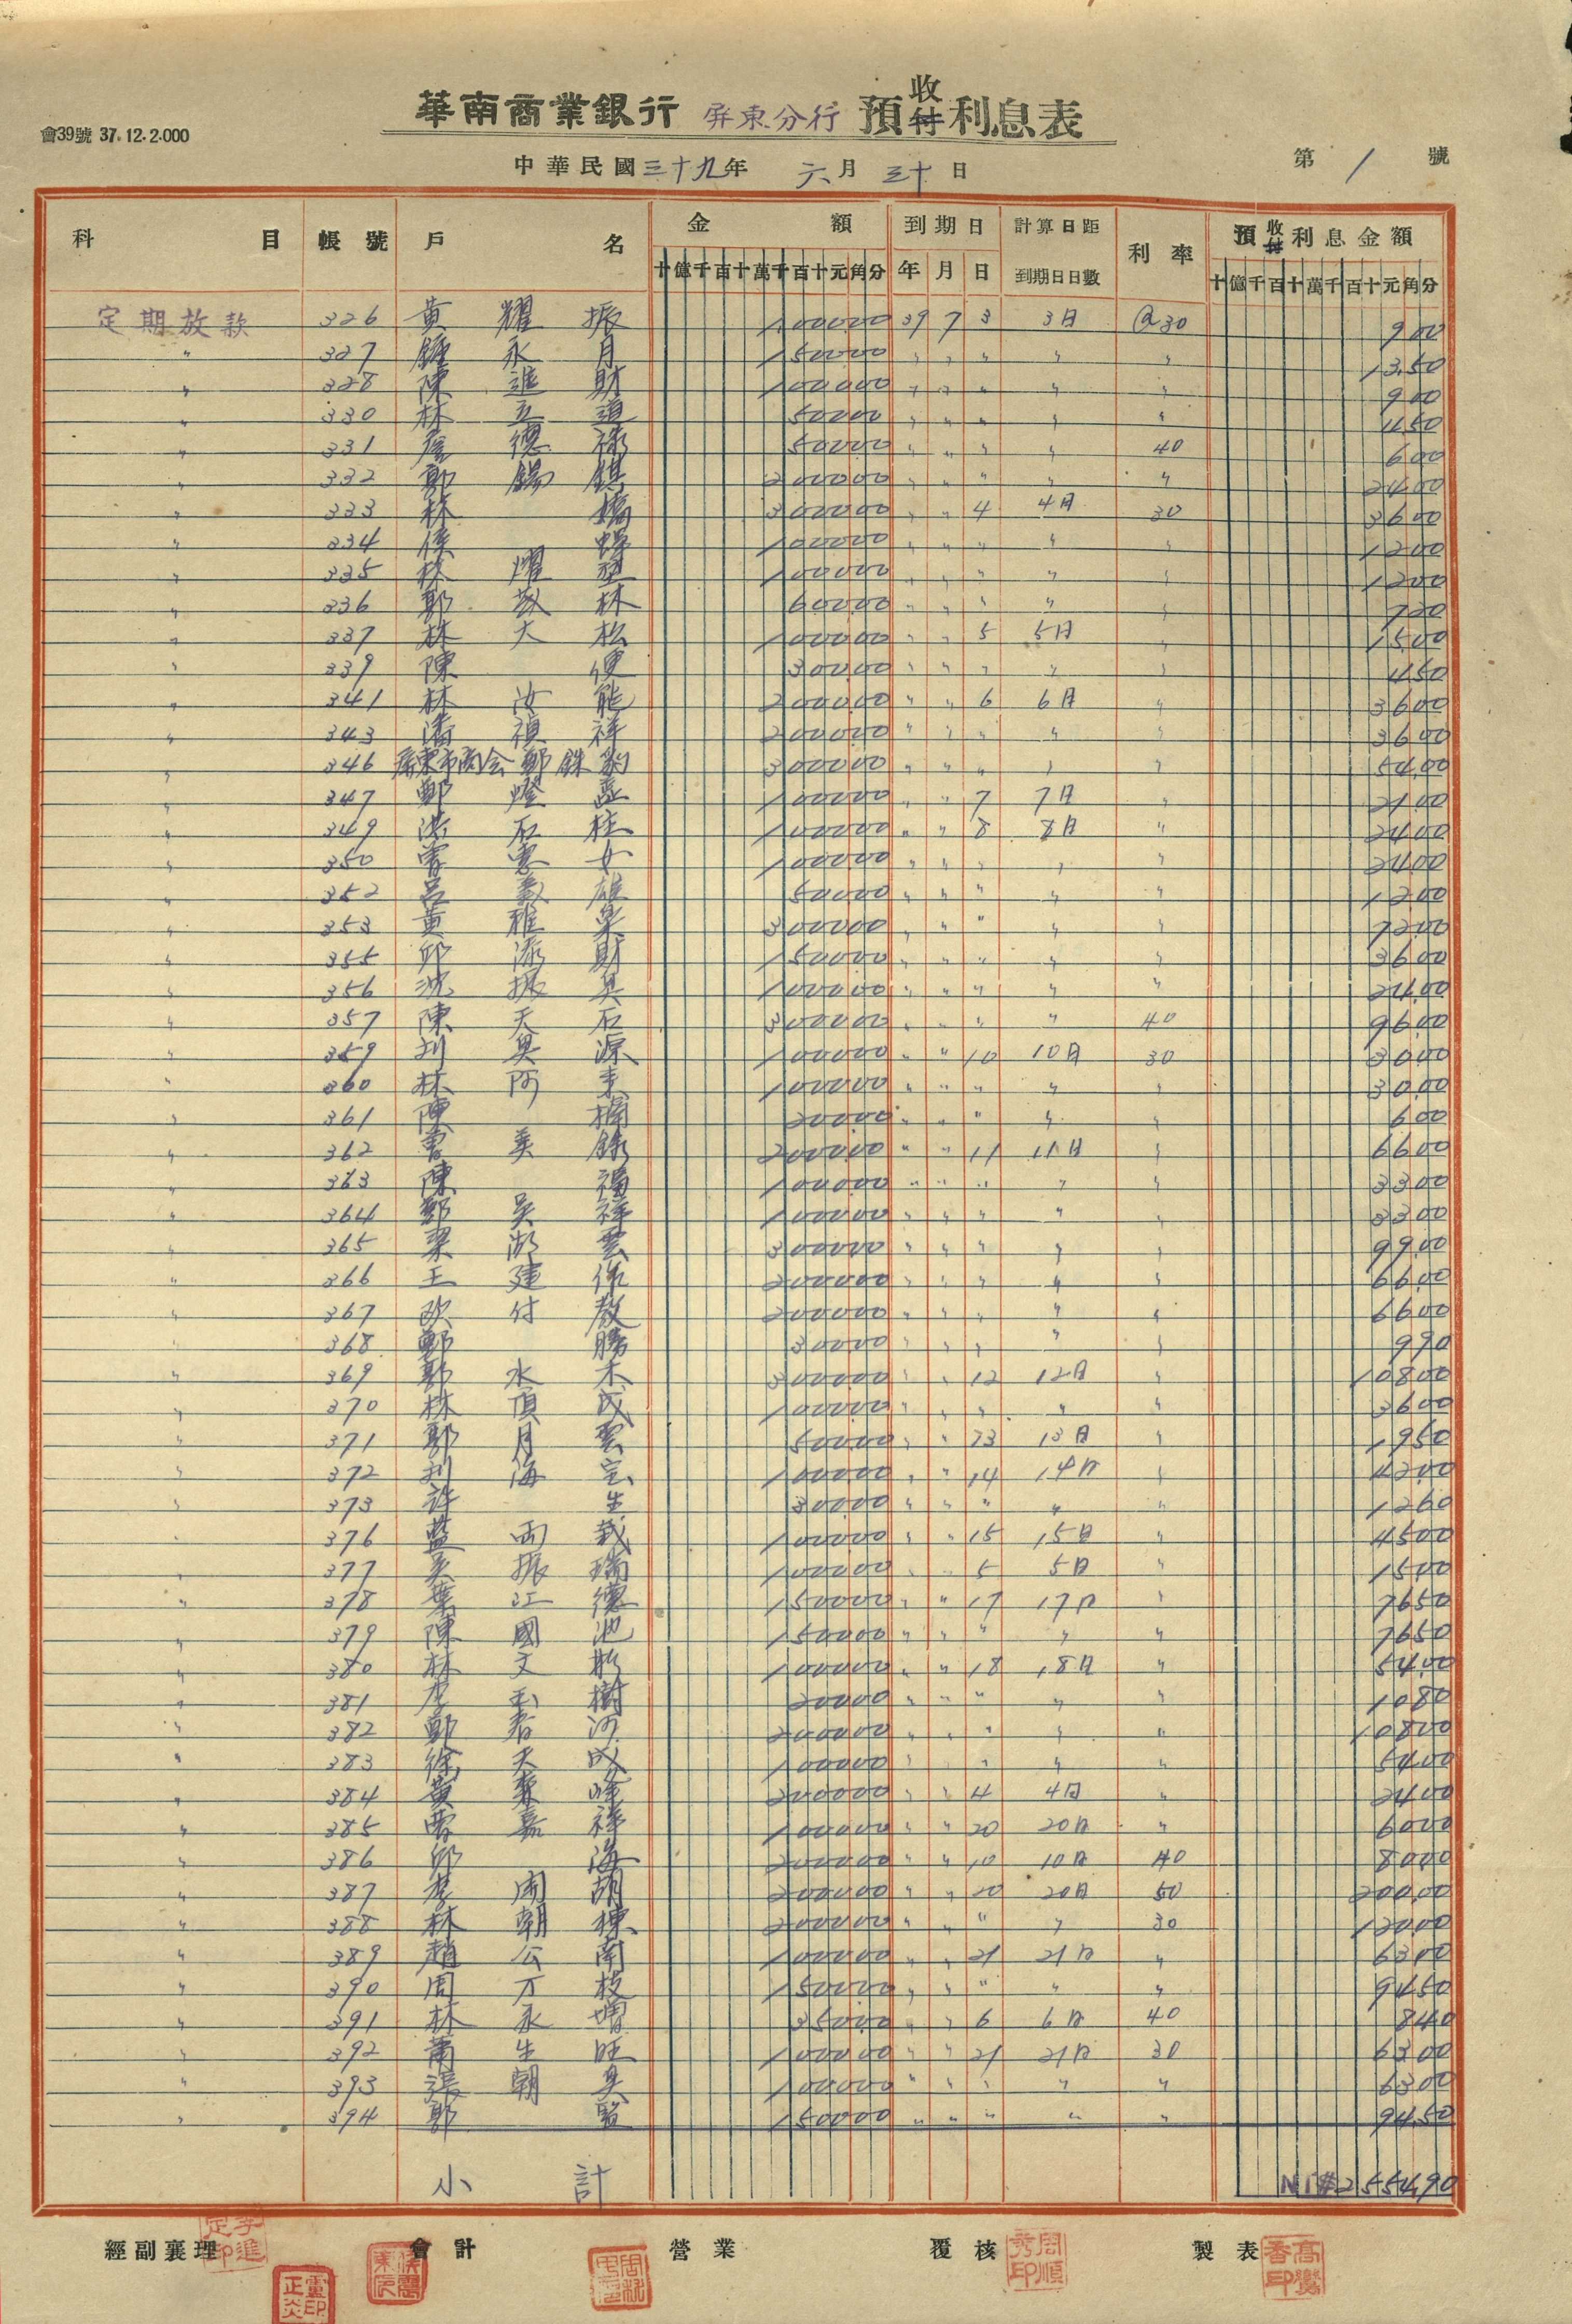 華南商業銀行 屏東分行 預收付利息表
會39號 37.12.2.000
中華民國三十九年 六月 三十日
第 1 號
科目 帳號 戶名 金額 到期日 計算日距到期日日數 利率 預收付利息金額
十億千百十萬千百十元角分 年 月 日 十億千百十萬千百十元角分
定期放款 326 黃耀振 100000 39 7 3 3日 @30 900
〃 327 永月 150000 〃 〃 〃 〃 〃 1350
〃 328 陳進財 100000 〃 〃 〃 〃 〃 900
〃 330 林立道 50000 〃 〃 〃 〃 〃 450
〃 331 德祿 50000 〃 〃 〃 〃 40 600
〃 332 郭錫鎮 200000 〃 〃 〃 〃 〃 2400
〃 333 林 300000 〃 〃 4 4日 30 3600
〃 334 侯 100000 〃 〃 〃 〃 〃 1200
〃 335 林耀 100000 〃 〃 〃 〃 〃 1200
〃 336 郭林 60000 〃 〃 〃 〃 〃 720
〃 337 林大松 100000 〃 〃 5 5日 〃 1500
〃 339 陳便 30000 〃 〃 〃 〃 〃 450
〃 341 林汝能 200000 〃 〃 6 6日 〃 3600
〃 343 潘禎祥 200000 〃 〃 〃 〃 〃 3600
〃 346 屏東市商会 鄭銖 300000 〃 〃 〃 〃 〃 5400
〃 347 鄭燈 100000 〃 〃 7 7日 〃 2100
〃 349 洪石柱 100000 〃 〃 8 8日 〃 2400
〃 350 曾女 100000 〃 〃 〃 〃 〃 2400
〃 352 呂雄 50000 〃 〃 〃 〃 〃 1200
〃 353 黃雅 300000 〃 〃 〃 〃 〃 7200
〃 355 邱添財 150000 〃 〃 〃 〃 〃 3600
〃 356 沈振 100000 〃 〃 〃 〃 〃 2400
〃 357 陳天石 300000 〃 〃 〃 〃 40 9600
〃 359 源 100000 〃 〃 10 10日 30 3000
〃 360 林阿 100000 〃 〃 〃 〃 〃 3000
〃 361 陳 20000 〃 〃 〃 〃 〃 600
〃 362 曹錄 200000 〃 〃 11 11日 〃 6600
〃 363 陳福 100000 〃 〃 〃 〃 〃 3300
〃 364 鄭吳祥 100000 〃 〃 〃 〃 〃 3300
〃 365 梁湖雲 300000 〃 〃 〃 〃 〃 9900
〃 366 王建 200000 〃 〃 〃 〃 〃 6600
〃 367 欧付教 200000 〃 〃 〃 〃 〃 6600
〃 368 鄭勝 30000 〃 〃 〃 〃 〃 990
〃 369 郭水木 300000 〃 〃 12 12日 〃 10800
〃 370 林頂成 100000 〃 〃 〃 〃 〃 3600
〃 371 郭月雲 50000 〃 〃 13 13日 〃 1950
〃 372 海 100000 〃 〃 14 14日 〃 4200
〃 373 許生 30000 〃 〃 〃 〃 〃 1260
〃 376 藍雨栽 100000 〃 〃 15 15日 〃 4500
〃 377 振瑞 100000 〃 〃 5 5日 〃 1500
〃 378 葉江德 150000 〃 〃 17 17日 〃 7650
〃 379 陳國池 150000 〃 〃 〃 〃 〃 7650
〃 380 林文 100000 〃 〃 18 18日 〃 5400
〃 381 李玉樹 20000 〃 〃 〃 〃 〃 1080
〃 382 鄭春河 200000 〃 〃 〃 〃 〃 10800
〃 383 徐天成 100000 〃 〃 〃 〃 〃 5400
〃 384 黃 200000 〃 〃 4 4日 〃 2400
〃 385 曹嘉祥 100000 〃 〃 20 20日 〃 6000
〃 386 邱海 200000 〃 〃 10 10日 40 8000
〃 387 李胡 200000 〃 〃 20 20日 50 20000
〃 388 林朝棟 200000 〃 〃 〃 〃 30 12000
〃 389 趙公南 100000 〃 〃 21 21日 〃 6300
〃 390 周万枝 150000 〃 〃 〃 〃 〃 9450
〃 391 林永增 35000 〃 〃 6 6日 40 840
〃 392 蕭生旺 100000 〃 〃 21 21日 30 6300
〃 393 張朝 100000 〃 〃 〃 〃 〃 6300
〃 394 郭 150000 〃 〃 〃 〃 〃 9450
小計 NT$255490
經副襄理 會計 營業 覆核 製表